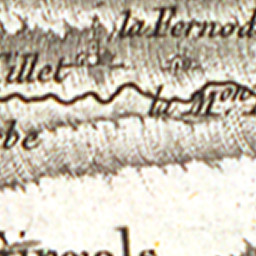 la Pernod
illet
la M.on
be